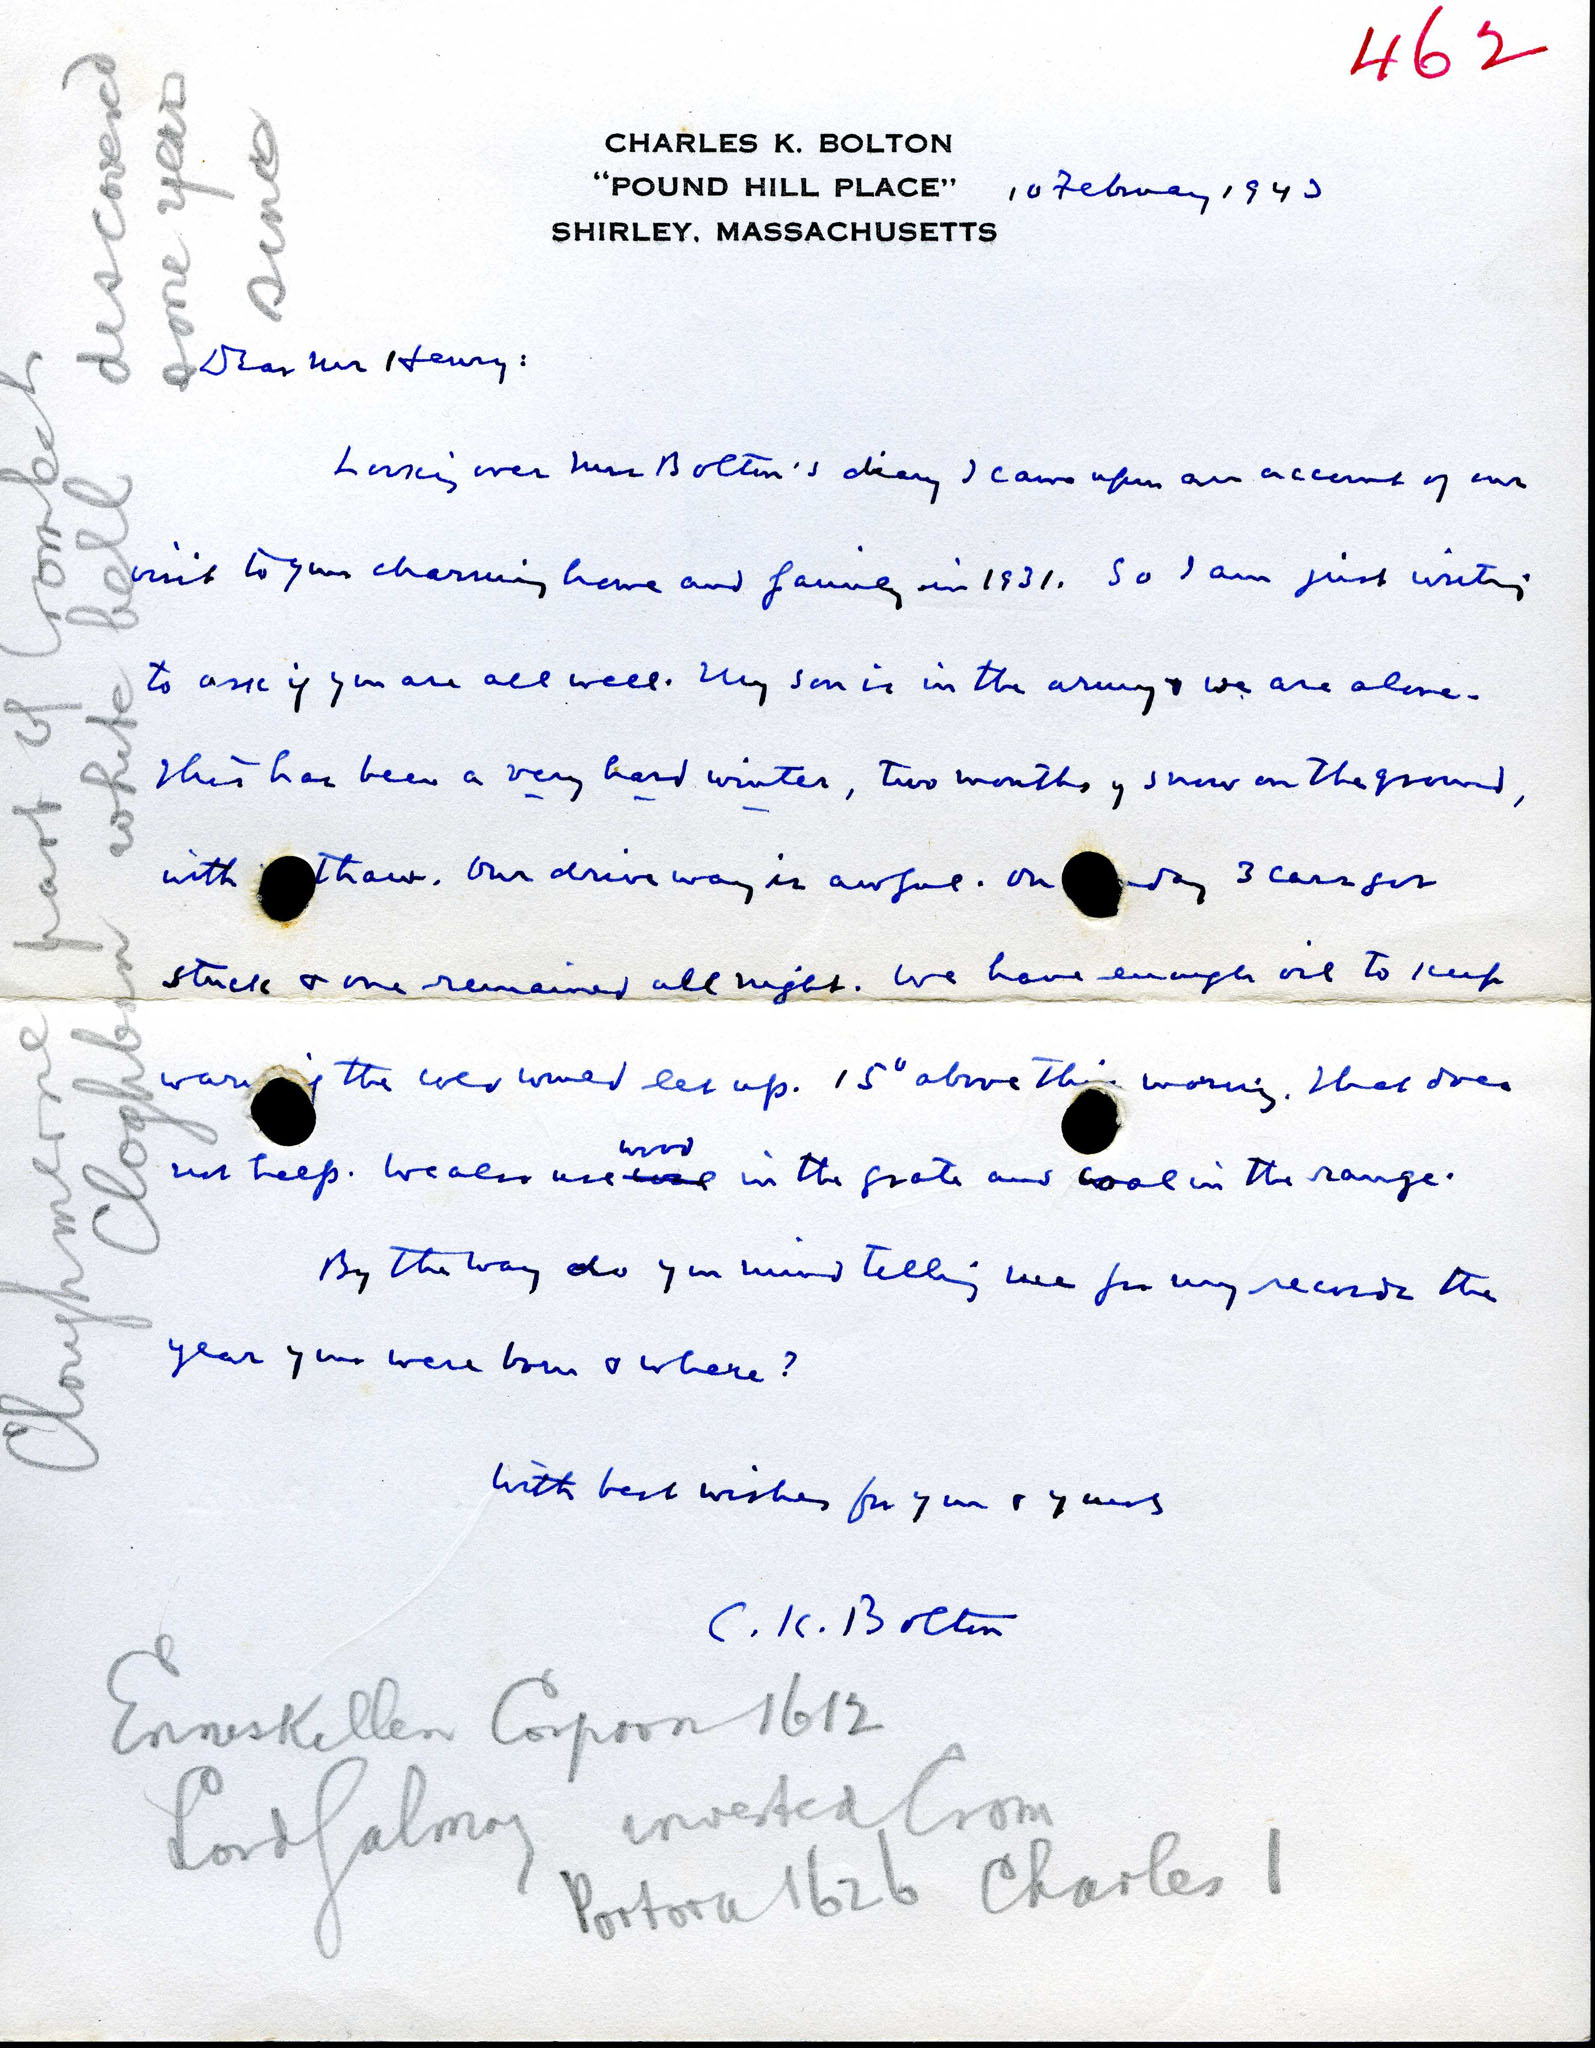 462
CHARLES K. BOLTON
"POUND HILL PLACE" 10 February 1943
SHIRLEY, MASSACHUSETTS
Dear Mr Henry:
Looking over Mrs Bolton's diary I came upon an account of our
visit to your charming home and family in 1931. So I am just writing
to ask if you are all well. My son is in the army & we are alone.
This has been a very hard winter, two months of snow on the ground,
with thaw. Our driveway is awful. On day 3 cars got
stuck & one remained all night. We have enough oil to keep
warm if the cold would let up. 15° above this morning. That does
not help. We also use coal wood in the grate and coal in the range.
By the way do you mind telling me for my records the
year you were born & where?
With best wishes for you & yours
C. K. Bolton
Enneskellen 1612
Lord Galmoy invested Crom
Portora 1626 Charles I
Cloughmene part of
Cloghbin white bell descovered
some years
since